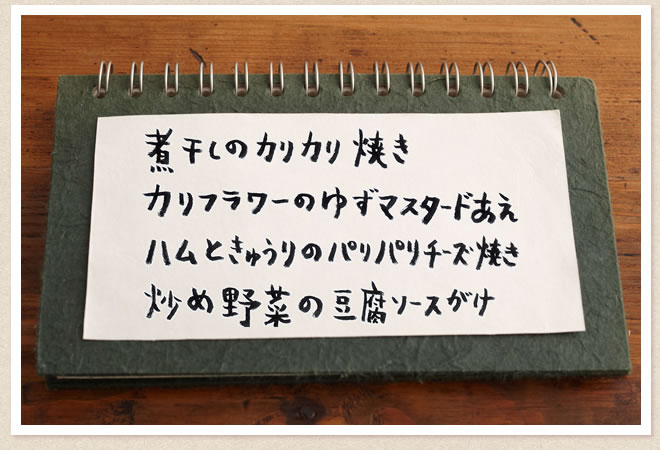 煮干しのカリカリ焼き
カリフラワーのゆずマスタードあえ
ハムときゅうりのパリパリチーズ焼き
炒め野菜の豆腐ソースがけ